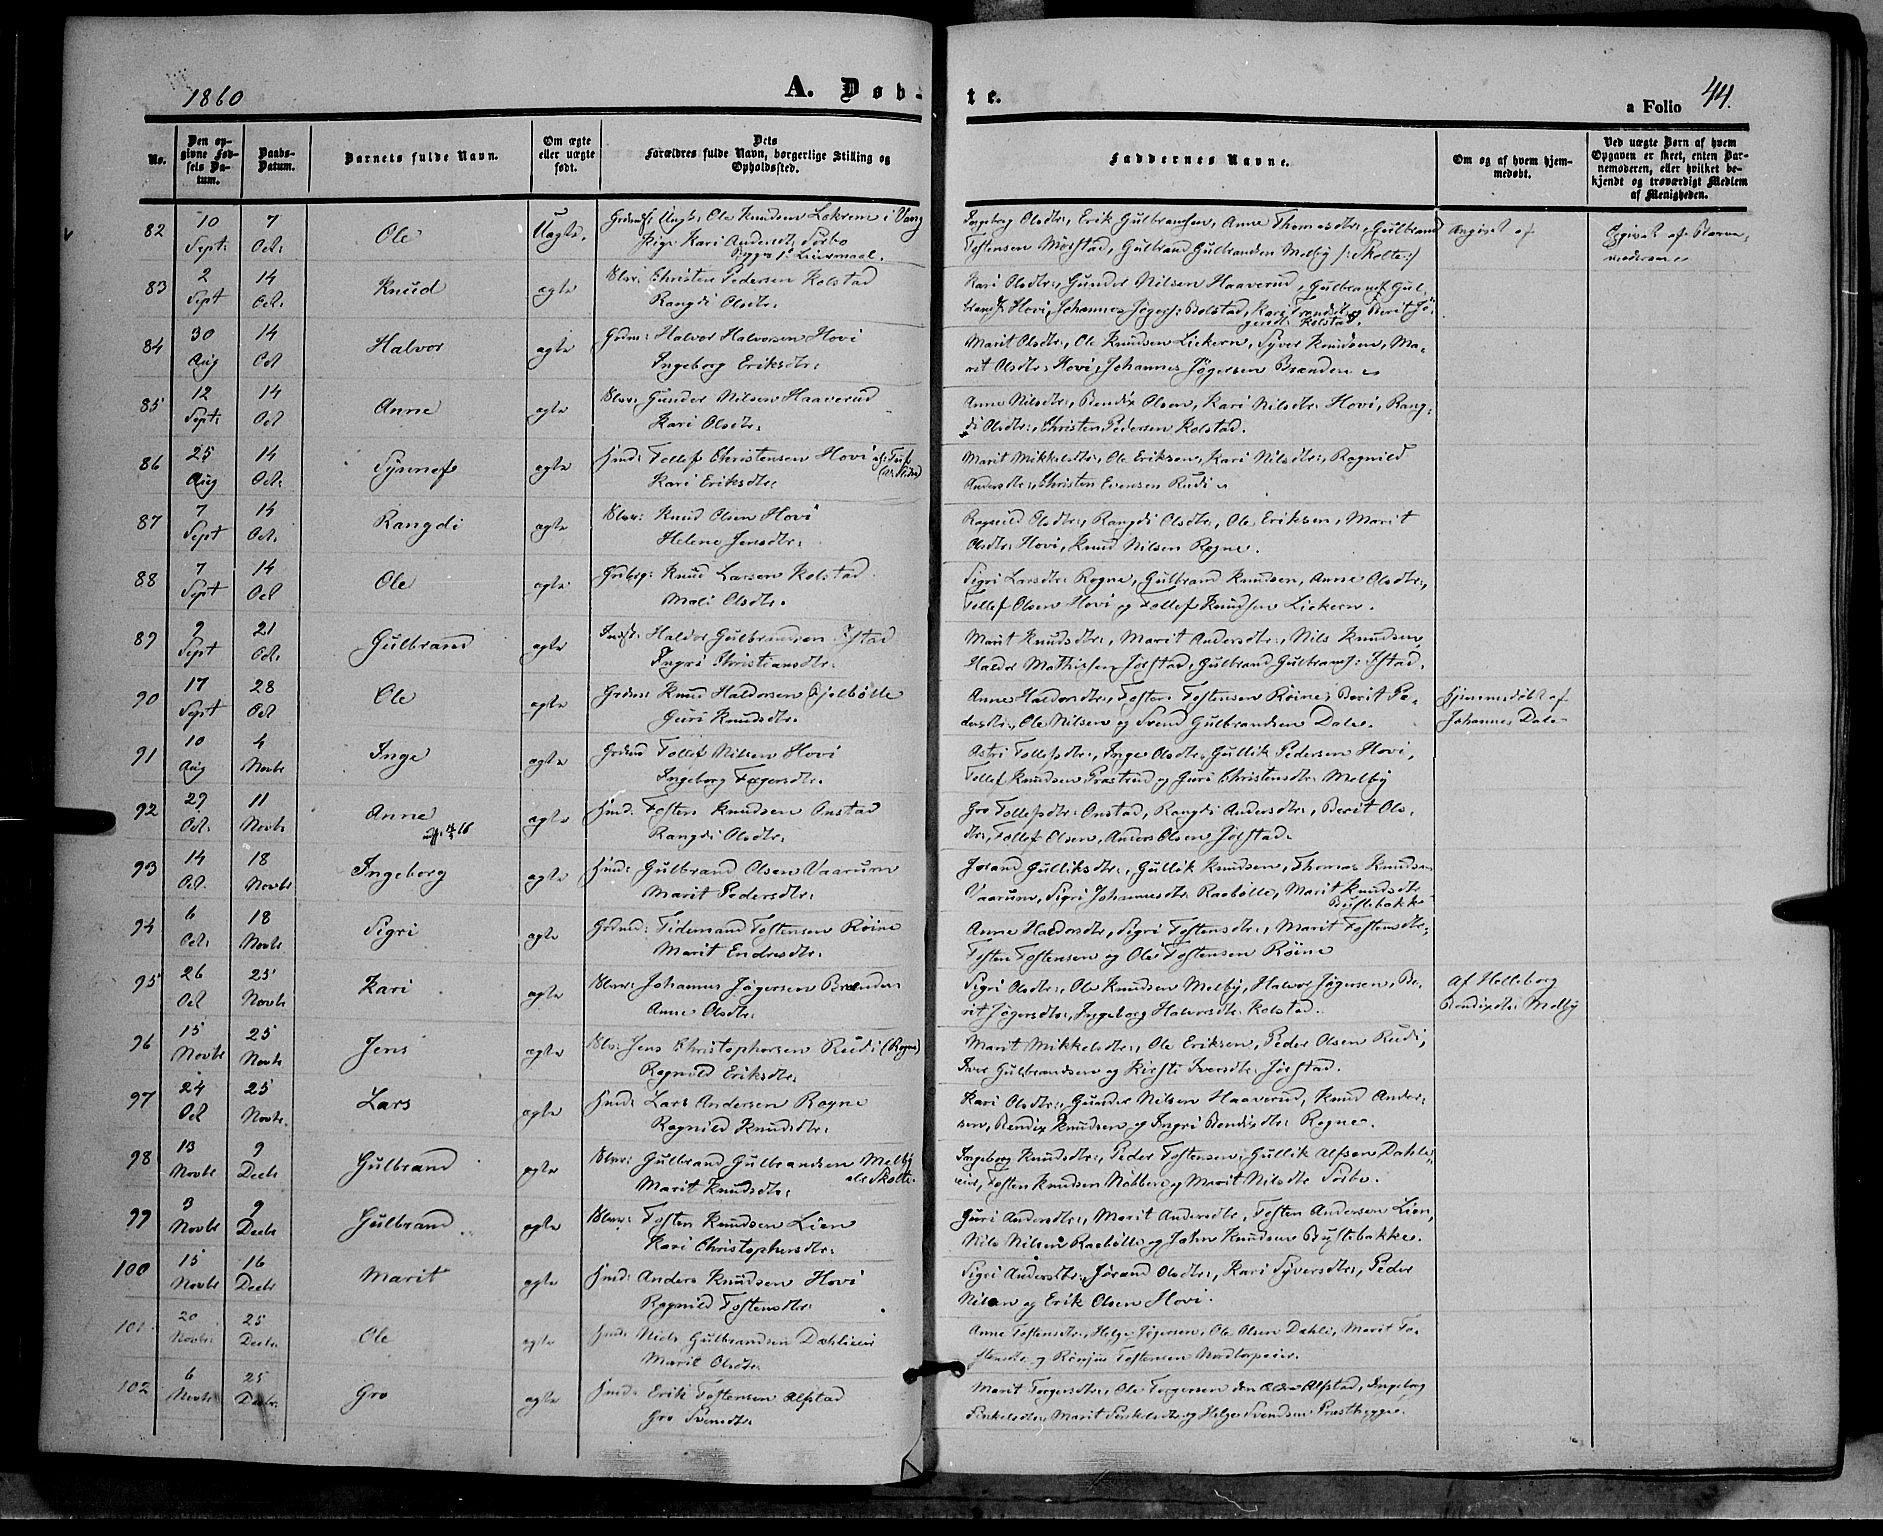 1860
A. Døb-
te.
a Folio 44.
No.
Den op-
givne Fød-
sels Da-
tum.
Daabs-
Datum.
Barnets fulde Navn.
Om ægte
eller uægte
født.
Dets
Forældres fulde Navn, borgerlige Stilling og
Opholdssted.
Faddernes Navne.
Om og af hvem hjem-
medøbt.
Ved uægte Børn af hvem
Opgaven er skeet, enten Bar-
nemoderen, eller hvilket be-
kjendt og troværdigt Medlem
af Menigheden.
82 10 7 Ole Uægte Ole Knudsen Lokrem i Vang Ingeborg Olsdtr:, Erik Gulbrandsen, Anne Thomasdtr:, Gulbrand Angivet af
Sept: Oct: Pige Kari Andersdtr: Sorbo Tostensen Mørstad, Gulbrand Gulbrandsen Melby /:Skolte:/
83 2 14 Knud ægte Christen Pedersen Kolstad Kari Olsdtr:, Gunder Nilsen Haaverud, Gulbrand Gul-
Sept Oct: Rangdi Olsdtr: Hovi, Johannes Bolstad, Kari
Kolstad.
84 30 14 Halvor ægte Grdm: Halvor Halvorsen Hovi Marit Olsdtr:, Ole Knudsen Liekern, Syver Knudsen, Ma-
Aug Oct Ingeborg Eriksdtr: rit Olsdtr: Hovi, Johannes Jøgersen Brænden
85 12 14 Anne ægte Gunder Nilsen Haaverud Anne Nilsdtr:, Bendix Olsen, Kari Nilsdtr: Hovi, Rang-
Sept: Oct Kari Olsdtr: di Olsdtr:, Christen Pedersen Kolstad.
86 25 14 Synnøf ægte Hmd: Tollef Christensen Hovi Marit Mikkelsdtr:, Ole Eriksen, Kari Nilsdtr:, Ragnild
Aug Oct: Kari Eriksdtr: Andersdtr:, Christen Evensen Rudi
87 7 14 Rangdi ægte Knud Olsen Hovi Ragnild Olsdtr:, Rangdi Olsdtr:, Ole Eriksen, Marit
Sept Oct: Helene Jensdtr: Olsdtr: Hovi, Knud Nilsen Rogne.
88 7 14 Ole ægte Knud Larsen Kolstad Sigri Larsdtr: Rogne, Gulbrand Knudsen, Anne Olsdtr:,
Sept Oct Mali Olsdtr: Tollef Olsen Hovi og Tollef Knudsen Liekern.
89 9 21 Gulbrand ægte Haldor Gulbrandsen Ifstad Marit Knudsdtr:, Marit Andersdtr:, Nils Knudsen,
Sept Oct: Ingri Christiansdtr: Haldor Mathisen Jorstad, Gulbrand Gulbrands: Ifstad.
90 17 28 Ole ægte Knud Haldorsen Gjelbølle Anne Haldorsdtr:, Tosten Tostensen Røine, Berit Pe- Hjemmedøbt af
Sept Oct Guri Knudsdtr: dersdtr:, Ole Nilsen og Svend Gulbrandsen Dale. Johannes Dale
91 10 4 Inge ægte Tollef Nilsen Hovi Astri Tollefsdtr:, Inge Olsdtr:, Gullik Pedersen Hovi,
Aug Novbr Ingeborg Tollef Knudsen Prestrud og Guri Christensdtr: Melby
92 29 11 Anne ægte Hmd: Tosten Knudsen Onstad Gro Tollefsdtr: Onstad, Rangdi Andersdtr:, Berit Ols-
Oct: Novbr Rangdi Olsdtr: dtr:, Tollef Olsen, Anders Olsen Jorstad.
93 14 18 Ingeborg ægte Hmd: Gulbrand Olsen Vaarum Jorand Gulliksdtr:, Gullik Knudsen, Thomas Knudsen
Oct. Novbr Marit Pedersdtr: Vaarum, Sigri Johannesdtr: Raabølle, Marit Knudsdtr:
Bustebakke
94 6 18 Sigri ægte Tidemand Tostensen Røine Anne Haldorsdtr:, Sigri Tostensdtr:, Marit Tostensdtr:,
Oct: Novbr Marit Endresdtr: Tosten Tostensen og Ole Tostensen Røine
95 26 25 Kari ægte Johannes Jøgersen Brænden Sigri Olsdtr:, Ole Knudsen Melby, Halvor Jøgersen, Be- Af Helleborg
Oct Novbr Anne Olsdtr: rit Jøgersdtr:, Ingeborg Halvorsdtr: Kolstad. Bendixdtr: Melby
96 15 25 Jens ægte Jens Christophersen Rudi (Rogne) Marit Mikkelsdtr:, Ole Eriksen, Peder Olsen Rudi,
Novbr Novbr Ragnild Eriksdtr: Iver Gulbrandsen og Kirsti Iversdtr: Jorstad.
97 24 25 Lars ægte Hmd: Lars Andersen Rogne Kari Olsdtr:, Gunder Nilsen Haaverud, Knud Ander-
Oct Novbr. Ragnild Knudsdtr: sen, Bendix Knudsen og Ingri Bendixdtr: Rogne.
98 13 9 Gulbrand ægte Gulbrand Gulbrandsen Melby Ingeborg Knudsdtr:, Peder Tostensen, Gullik Alfsen Dahle-
Novbr Decbr Marit Knudsdtr: Tosten Knudsen og Marit Nilsdtr Sorbo.
99 3 9 Gulbrand ægte Tosten Knudsen Lien Guri Andersdtr:, Marit Andersdtr:, Tosten Andersen Lien,
Novbr Decbr Kari Christophersdtr: Nils Nilsen Raabølle og John Knudsen Bustebakke.
100 15 16 Marit ægte Hmd: Anders Knudsen Hovi Sigri Andersdtr:, Jorand Olsdtr:, Kari Syversdtr:, Peder
Novbr Decbr Ragnild Tostensdtr: Nilsen og Erik Olsen Hovi.
101 20 25 Ole ægte Hmd: Niels Gulbrandsen Dahleiei Anne Tostensdtr:, Helge Jøgersen, Ole Olsen Dahli, Marit To-
Novbr Decbr Marit Olsdtr: stensdtr: og Tostensen
102 6 25 Gro ægte Hmd: Erik Tostensen Alfstad Marit Torgersdtr:, Ole Torgersen den Alfstad, Ingeborg
Novbr Decbr. Gro Svensdtr: Marit og Helge Svendsen